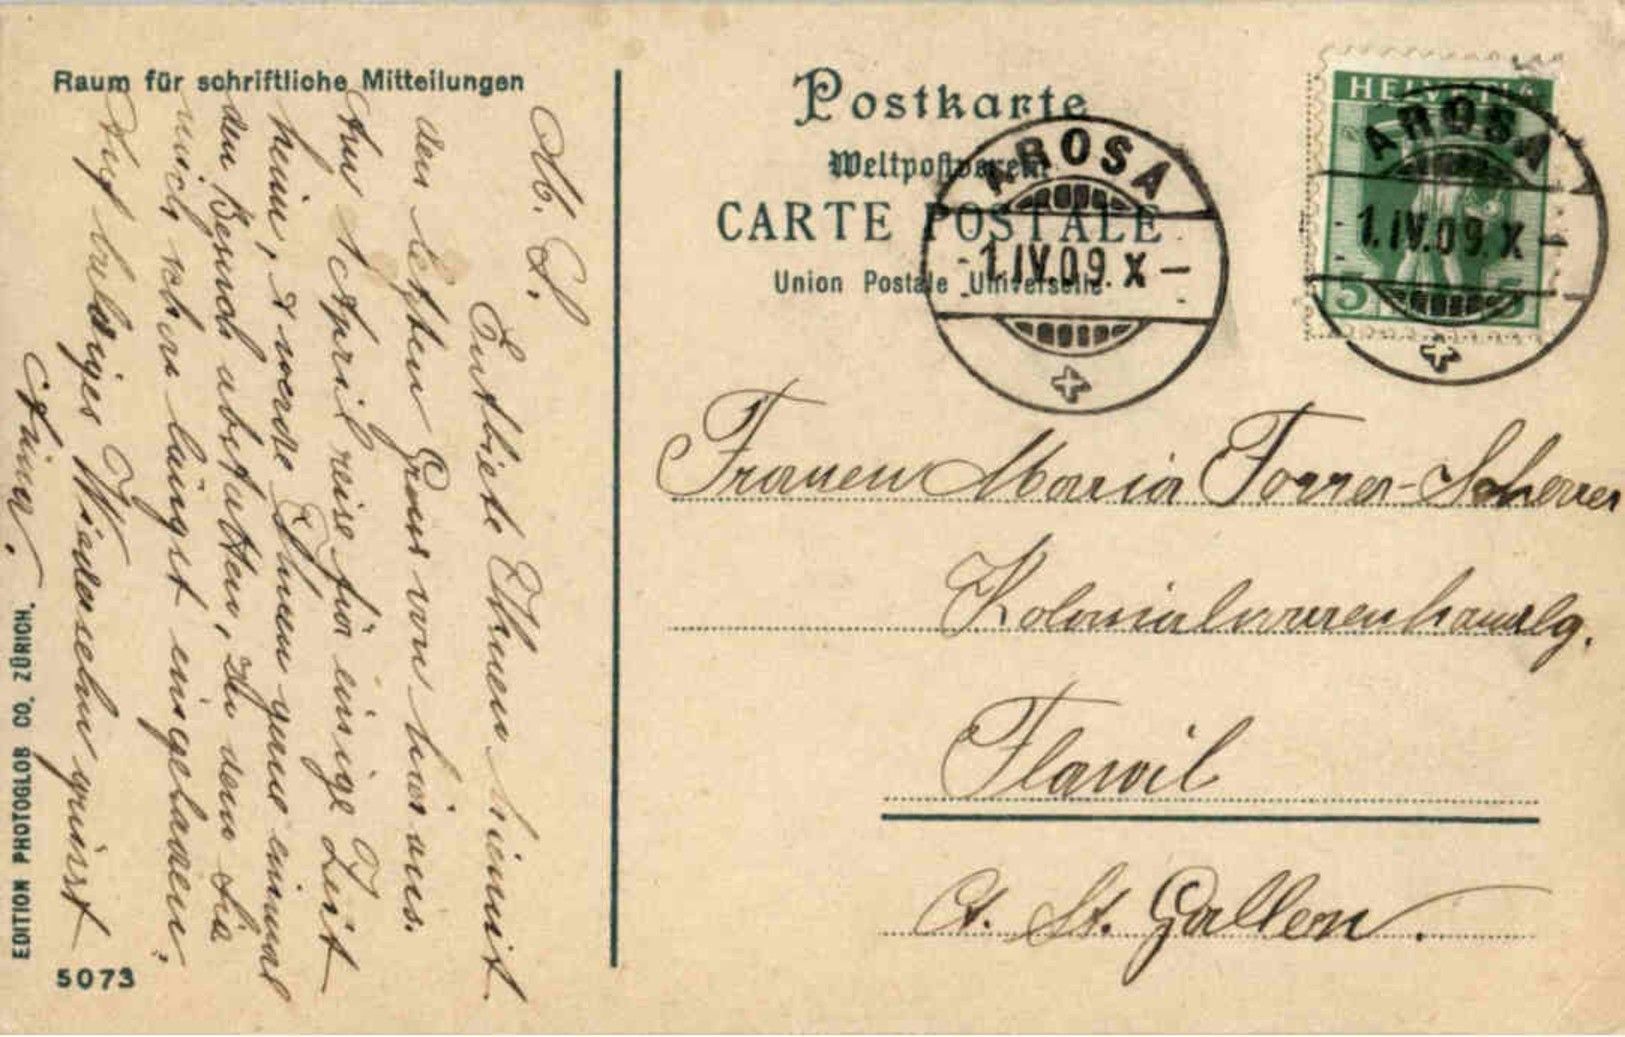 Raum für schriftliche Mitteilungen
M. L.
Entbiete Ihnen hiemit
den letzten Gruss von hier aus.
Am 1 April reise für einige Zeit
heim, & werde Ihnen gerne einmal
den Besuch abstatten, zu dem Sie
mich schon längst eingeladen.
Auf baldiges Wiedersehn grüsst
EDITION PHOTOGLOB CO. ZÜRICH.
5073
Postkarte
Weltpostverein
CARTE POSTALE
Union Postale Universelle
AROSA
1.IV.09.X–
HELVETIA
5 5
AROSA
1.IV.09.X–
Frauen Maria Forrer-Scherrer
Kolonialwarenhandlg.
Flawil
Ct. St. Gallen.